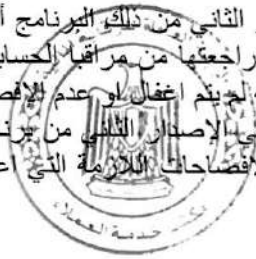 الثاني من ذلك البرنامج أ
راجعتها من مراقبا الحساب
لم يتم اغفال او عدم الإفص
ي الإصدار الثاني من برن
لإفصاحات اللازمة التي اع
خدمة العملاء